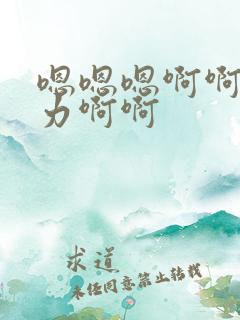 嗯嗯嗯啊啊
力啊啊
求道
未经同意禁止转载